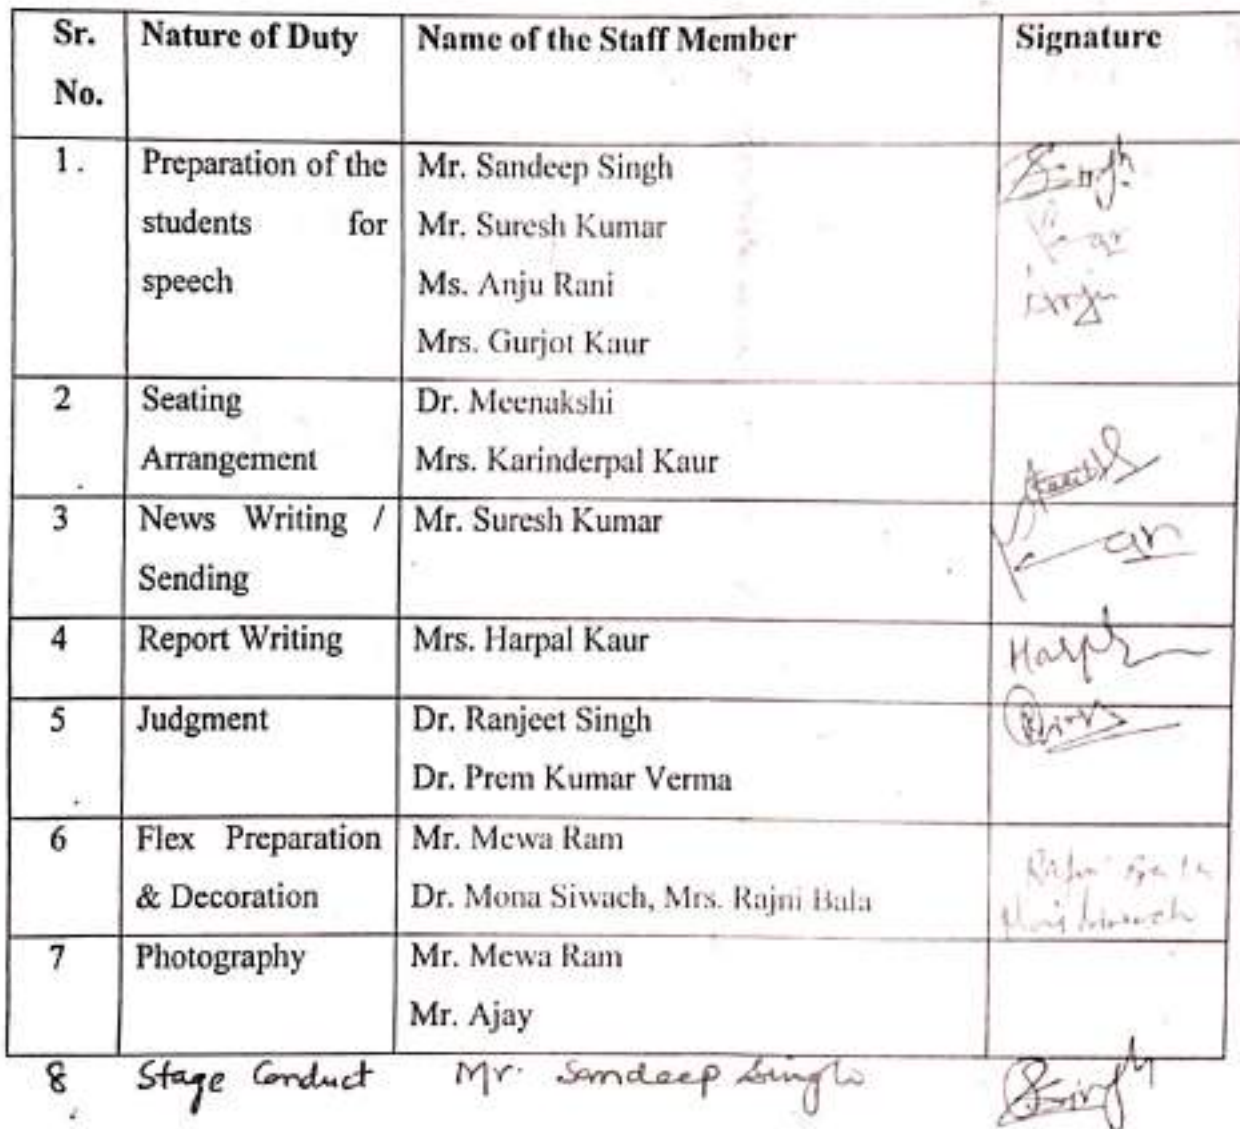 Sr. No. Nature of Duty Name of the Staff Member Signature
1. Preparation of the students for speech
Mr. Sandeep Singh
Mr. Suresh Kumar
Ms. Anju Rani
Mrs. Gurjot Kaur
Singh
Anju
2 Seating Arrangement
Dr. Meenakshi
Mrs. Karinderpal Kaur
3 News Writing / Sending
Mr. Suresh Kumar
4 Report Writing
Mrs. Harpal Kaur
5 Judgment
Dr. Ranjeet Singh
Dr. Prem Kumar Verma
6 Flex Preparation & Decoration
Mr. Mewa Ram
Dr. Mona Siwach, Mrs. Rajni Bala
Rajni Bala
7 Photography
Mr. Mewa Ram
Mr. Ajay
8 Stage Conduct Mr. Sandeep Singh Singh